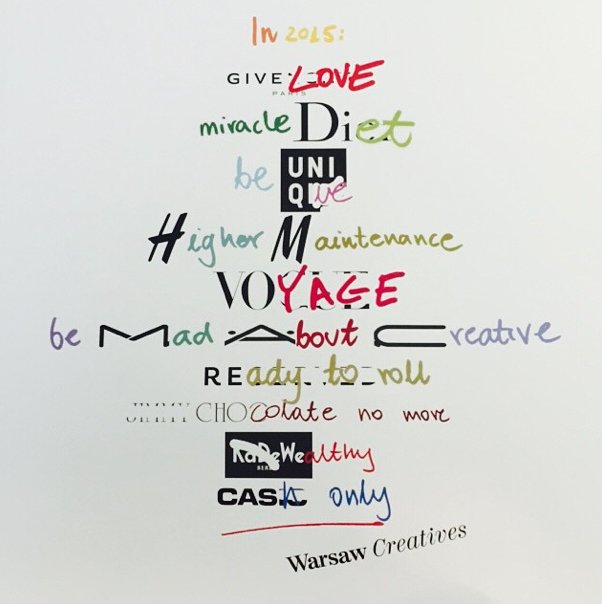 In 2015:
GIVE LOVE
PARIS
miracle Diet
be UNIQue
Higher Maintenance
VOYAGE
be Mad About Creative
REady to roll
JIMMY CHOColate no more
KaDeWealthy
CASh only
Warsaw Creatives